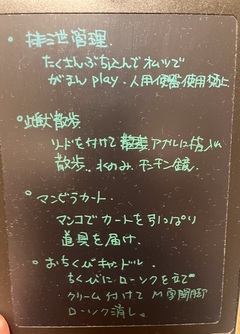 ・排泄管理
たくさんぶち込んでオムツで
がまんplay.人用便器使用禁止
・雌獣散歩
リードを付けて アナルに尻尾
散歩.水のみ、チンチン鏡.
・マンビラカート
マンコでカートを引っぱり
道具を届け.
・おちくびキャンドル
ちくびにローソクを立て
クリーム付けて M字開脚
ローソク消し。